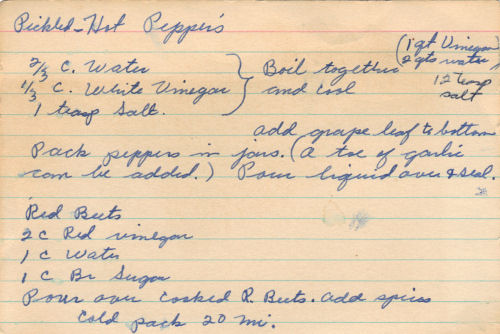 Pickled-Hot Peppers
(1 qt Vinegar
2 qts water)
12 teasp
salt
2/3 C. Water
1/3 C. White Vinegar
1 teasp Salt.
Boil together
and cool
add grape leaf to bottom
Pack peppers in jars. (A toe of garlic
can be added.) Pour liquid over & seal.
Red Beets
2 C Red vinegar
1 C Water
1 C Br Sugar
Pour over cooked R. Beets. add spices
Cold pack 20 mi.